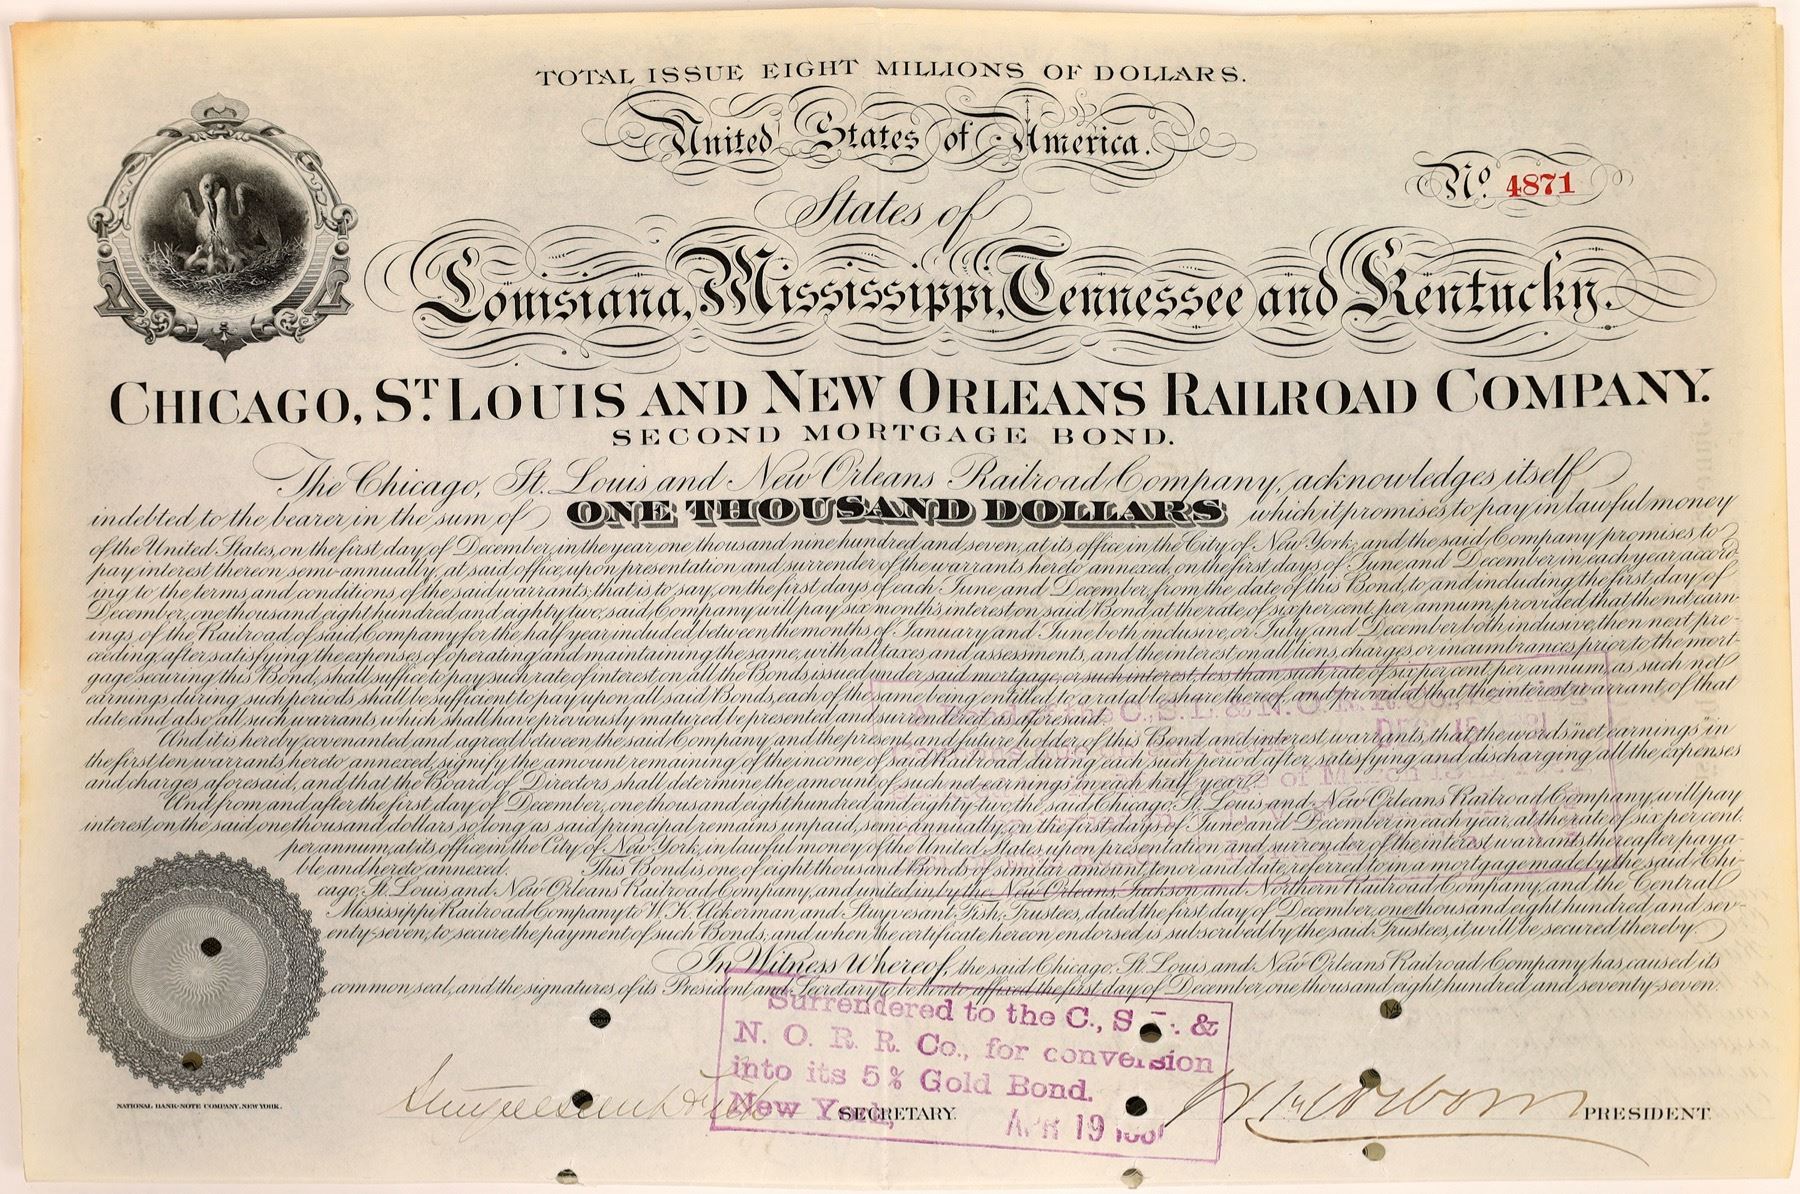 TOTAL ISSUE EIGHT MILLIONS OF DOLLARS.
United States of America.
No. 4871
States of
Louisiana, Mississippi, Tennessee and Kentucky.
CHICAGO, ST. LOUIS AND NEW ORLEANS RAILROAD COMPANY.
SECOND MORTGAGE BOND.
The Chicago, St. Louis and New Orleans Railroad Company, acknowledges itself
indebted to the bearer in the sum of ONE THOUSAND DOLLARS which it promises to pay in lawful money
of the United States, on the first day of December, in the year one thousand nine hundred and seven, at its office in the City of New York; and the said Company promises to
pay interest thereon semi-annually, at said office, upon presentation and surrender of the warrants hereto annexed, on the first days of June and December in each year, accord-
ing to the terms and conditions of the said warrants; that is to say, on the first days of each June and December, from the date of this Bond, to and including the first day of
December, one thousand eight hundred and eighty two, said Company will pay six months interest on said Bond at the rate of six per cent. per annum, provided that the net earn-
ings of the Railroad of said Company for the half year included between the months of January and June both inclusive, or July and December both inclusive, then next pre-
ceding, after satisfying the expenses of operating and maintaining the same, with all taxes and assessments, and the interest on all liens, charges or incumbrances prior to the mort-
gage securing this Bond, shall suffice to pay such rate of interest on all the Bonds issued under said mortgage, or such interest less than such rate of six per cent. per annum, as such net
earnings during such periods shall be sufficient to pay upon all said Bonds, each of the same being entitled to a ratable share thereof, and provided that the interest warrant of that
date and also all such warrants which shall have previously matured be presented and surrendered as aforesaid.
And it is hereby covenanted and agreed between the said Company and the present and future holder of this Bond and interest warrants, that the words "net earnings" in
the first ten warrants hereto annexed, signify the amount remaining of the income of said Railroad during each such period after satisfying and discharging all the expenses
and charges aforesaid, and that the Board of Directors shall determine the amount of such net earnings in each half year.
And from and after the first day of December, one thousand eight hundred and eighty-two, the said Chicago, St. Louis and New Orleans Railroad Company, will pay
interest on the said one thousand dollars so long as said principal remains unpaid, semi annually, on the first days of June and December in each year, at the rate of six per cent.
per annum, at its office in the City of New York, in lawful money of the United States, upon presentation and surrender of the interest warrants thereafter paya-
ble and hereto annexed. This Bond is one of eight thousand Bonds of similar amount, tenor and date, referred to in a mortgage made by the said Chi-
cago, St. Louis and New Orleans Railroad Company, and united in by the New Orleans, Jackson and Northern Railroad Company, and the Central
Mississippi Railroad Company to W. K. Ackerman and Stuyvesant Fish, Trustees, dated the first day of December, one thousand eight hundred and sev-
enty-seven, to secure the payment of such Bonds, and when the certificate hereon endorsed is subscribed by the said Trustees, it will be secured thereby.
In Witness Whereof, the said Chicago, St. Louis and New Orleans Railroad Company has caused its
common seal, and the signatures of its President and Secretary to be hereto affixed the first day of December one thousand eight hundred and seventy-seven.
Surrendered to the C., S. L. &
N. O. R. R. Co., for conversion
into its 5% Gold Bond.
New York, APR 19
SECRETARY.
PRESIDENT.
NATIONAL BANK-NOTE COMPANY, NEW YORK.